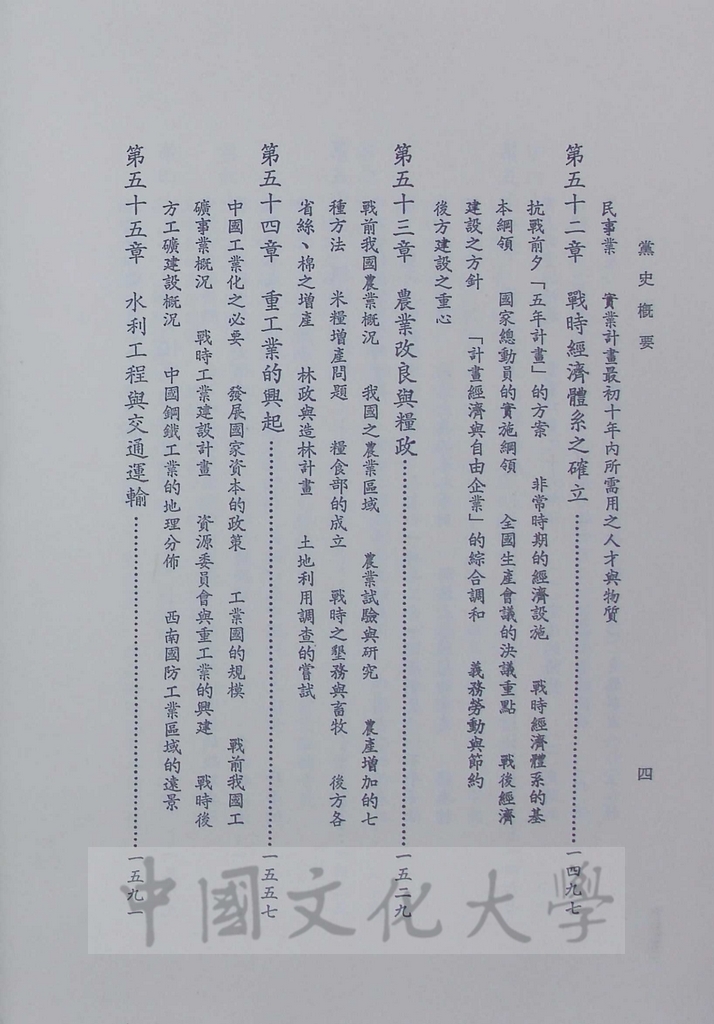 黨史概要
四
民事業　實業計畫最初十年內所需用之人才與物質
第五十二章　戰時經濟體系之確立……一四九七
抗戰前夕「五年計畫」的方案　非常時期的經濟設施　戰時經濟體系的基
本綱領　國家總動員的實施綱領　全國生產會議的決議重點　戰後經濟
建設之方針　「計畫經濟與自由企業」的綜合調和　義務勞動與節約
後方建設之重心
第五十三章　農業改良與糧政……一五二九
戰前我國農業概況　我國之農業區域　農業試驗與研究　農產增加的七
種方法　米糧增產問題　糧食部的成立　戰時之墾務與畜牧　後方各
省絲、棉之增產　林政與造林計畫　土地利用調查的嘗試
第五十四章　重工業的興起……一五五七
中國工業化之必要　發展國家資本的政策　工業國的規模　戰前我國工
礦事業概況　戰時工業建設計畫　資源委員會與重工業的興建　戰時後
方工礦建設概況　中國鋼鐵工業的地理分佈　西南國防工業區域的遠景
第五十五章　水利工程與交通運輸……一五九一
中國文化大學